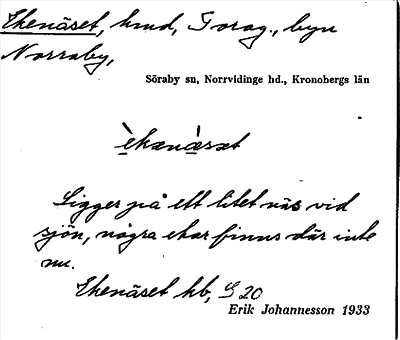 Ekenäset, hmd, Torag., byn
Norraby,
Söraby sn, Norrvidinge hd., Kronobergs län
èkænä̀sæt
Ligger på ett litet näs vid
sjön, några ekar finns där inte
nu.
Ekenäset hb, S 20
Erik Johannesson 1933